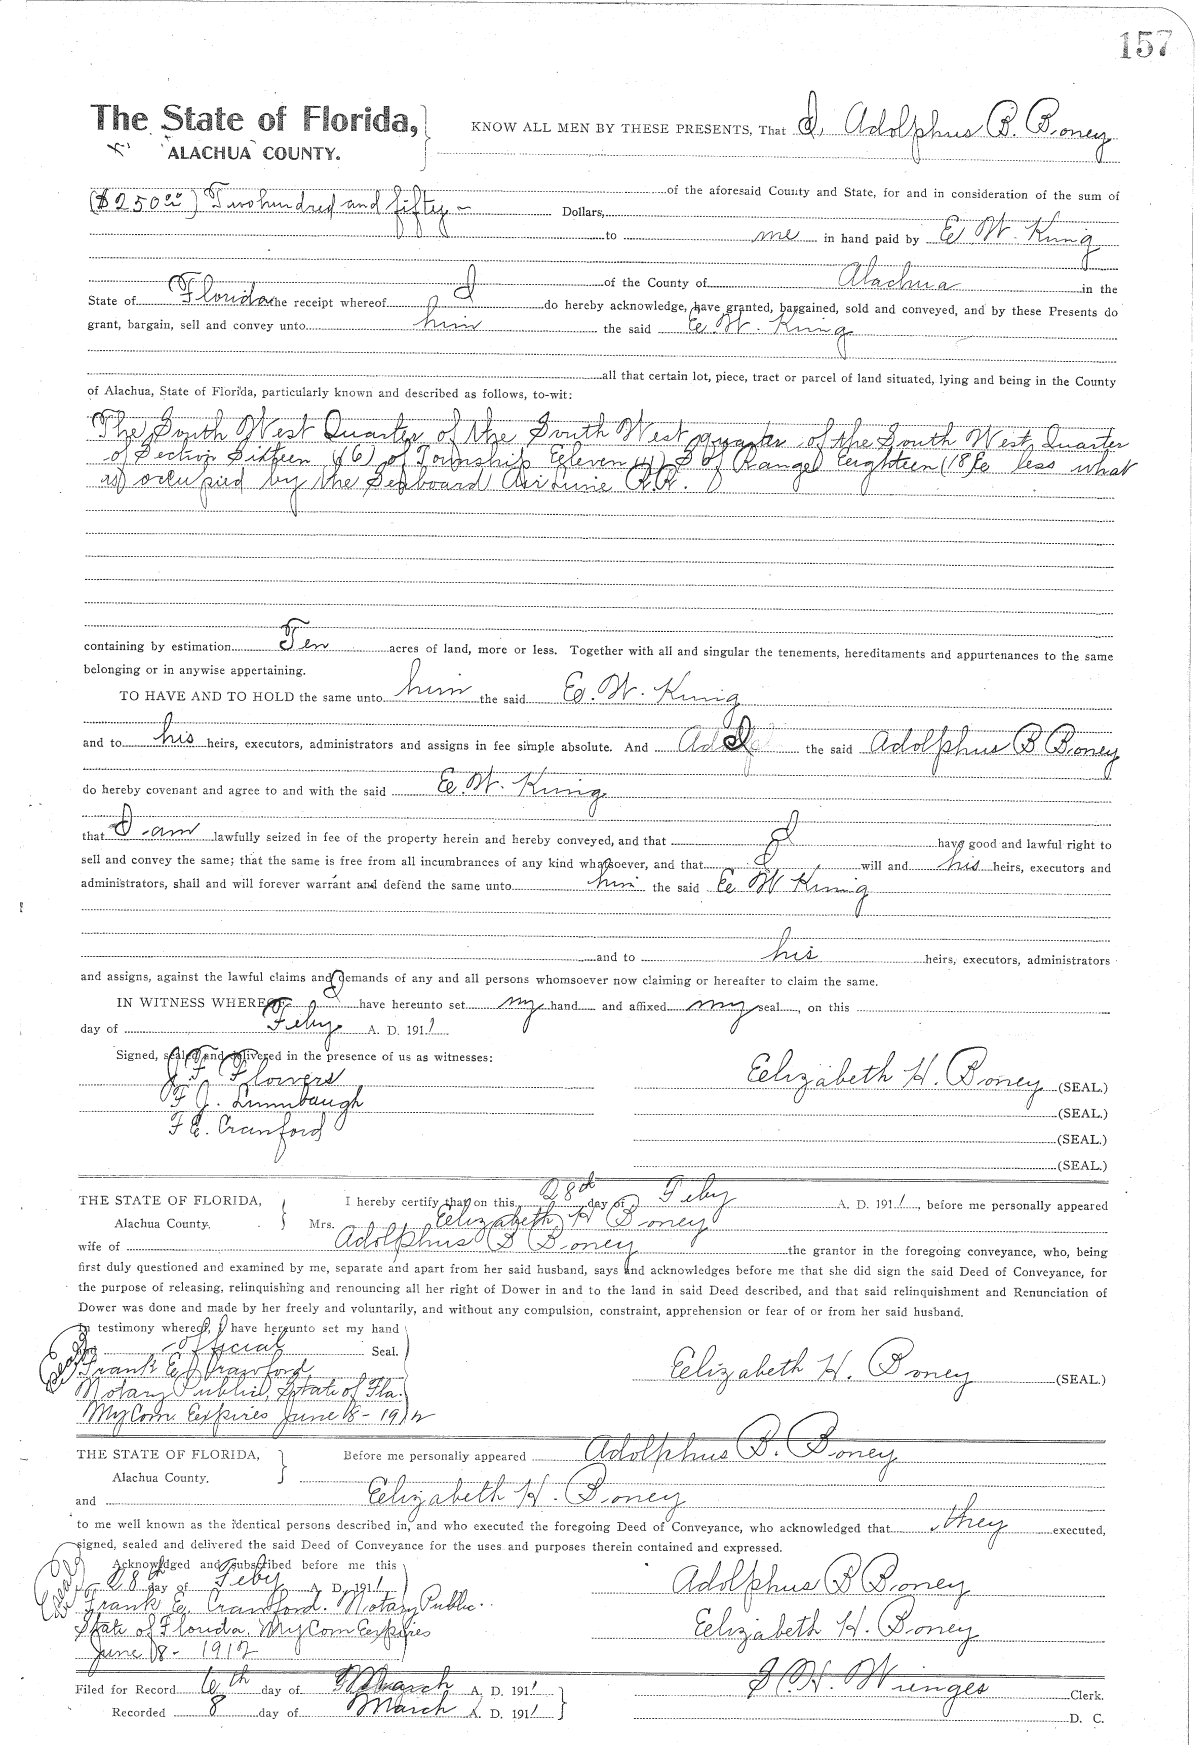 157
The State of Florida, KNOW ALL MEN BY THESE PRESENTS, That I, Adolphus B. Boney
ALACHUA COUNTY.
of the aforesaid County and State, for and in consideration of the sum of
($250.00) Two hundred and fifty - Dollars,
to me in hand paid by E. W. King
of the County of Alachua in the
State of Florida the receipt whereof I do hereby acknowledge, have granted, bargained, sold and conveyed, and by these Presents do
grant, bargain, sell and convey unto him the said E. W. King
all that certain lot, piece, tract or parcel of land situated, lying and being in the County
of Alachua, State of Florida, particularly known and described as follows, to-wit:
The South West Quarter of the South West quarter of the South West Quarter
of Section Sixteen (16) of Township Eleven (11) S of Range Eighteen (18) E less what
is occupied by the Seaboard Air Line R.R.
containing by estimation Ten acres of land, more or less. Together with all and singular the tenements, hereditaments and appurtenances to the same
belonging or in anywise appertaining.
TO HAVE AND TO HOLD the same unto him the said E. W. King
and to his heirs, executors, administrators and assigns in fee simple absolute. And I the said Adolphus B Boney
do hereby covenant and agree to and with the said E. W. King
that I am lawfully seized in fee of the property herein and hereby conveyed, and that I have good and lawful right to
sell and convey the same; that the same is free from all incumbrances of any kind whatsoever, and that I will and his heirs, executors and
administrators, shall and will forever warrant and defend the same unto him the said E W King
and to his heirs, executors, administrators
and assigns, against the lawful claims and demands of any and all persons whomsoever now claiming or hereafter to claim the same.
IN WITNESS WHEREOF I have hereunto set my hand and affixed my seal, on this
day of Feby A. D. 1911.
Signed, sealed and delivered in the presence of us as witnesses:
J. F. Flowers Elizabeth H. Boney (SEAL.)
F J. (SEAL.)
F E. Cranford (SEAL.)
(SEAL.)
THE STATE OF FLORIDA, I hereby certify that on this 28th day of Feby A. D. 1911, before me personally appeared
Alachua County. Mrs. Elizabeth H Boney
wife of Adolphus B Boney the grantor in the foregoing conveyance, who, being
first duly questioned and examined by me, separate and apart from her said husband, says and acknowledges before me that she did sign the said Deed of Conveyance, for
the purpose of releasing, relinquishing and renouncing all her right of Dower in and to the land in said Deed described, and that said relinquishment and Renunciation of
Dower was done and made by her freely and voluntarily, and without any compulsion, constraint, apprehension or fear of or from her said husband.
In testimony whereof, I have hereunto set my hand
and official Seal.
(Seal) Frank E Crawford Elizabeth H. Boney (SEAL.)
Notary Public, State of Fla.
My Com. Expires June 8 - 1912
THE STATE OF FLORIDA, Before me personally appeared Adolphus B. Boney
Alachua County.
and Elizabeth H. Boney
to me well known as the identical persons described in, and who executed the foregoing Deed of Conveyance, who acknowledged that they executed,
signed, sealed and delivered the said Deed of Conveyance for the uses and purposes therein contained and expressed.
Acknowledged and subscribed before me this
28 day of Feby A. D. 1911 Adolphus B Boney
(Seal) Frank E. Crawford. Notary Public.
State of Florida. My Com Expires Elizabeth H. Boney
June 8 - 1912
Filed for Record 6th day of March A. D. 1911 S. H. Wienges Clerk.
Recorded 8 day of March A. D. 1911 D. C.